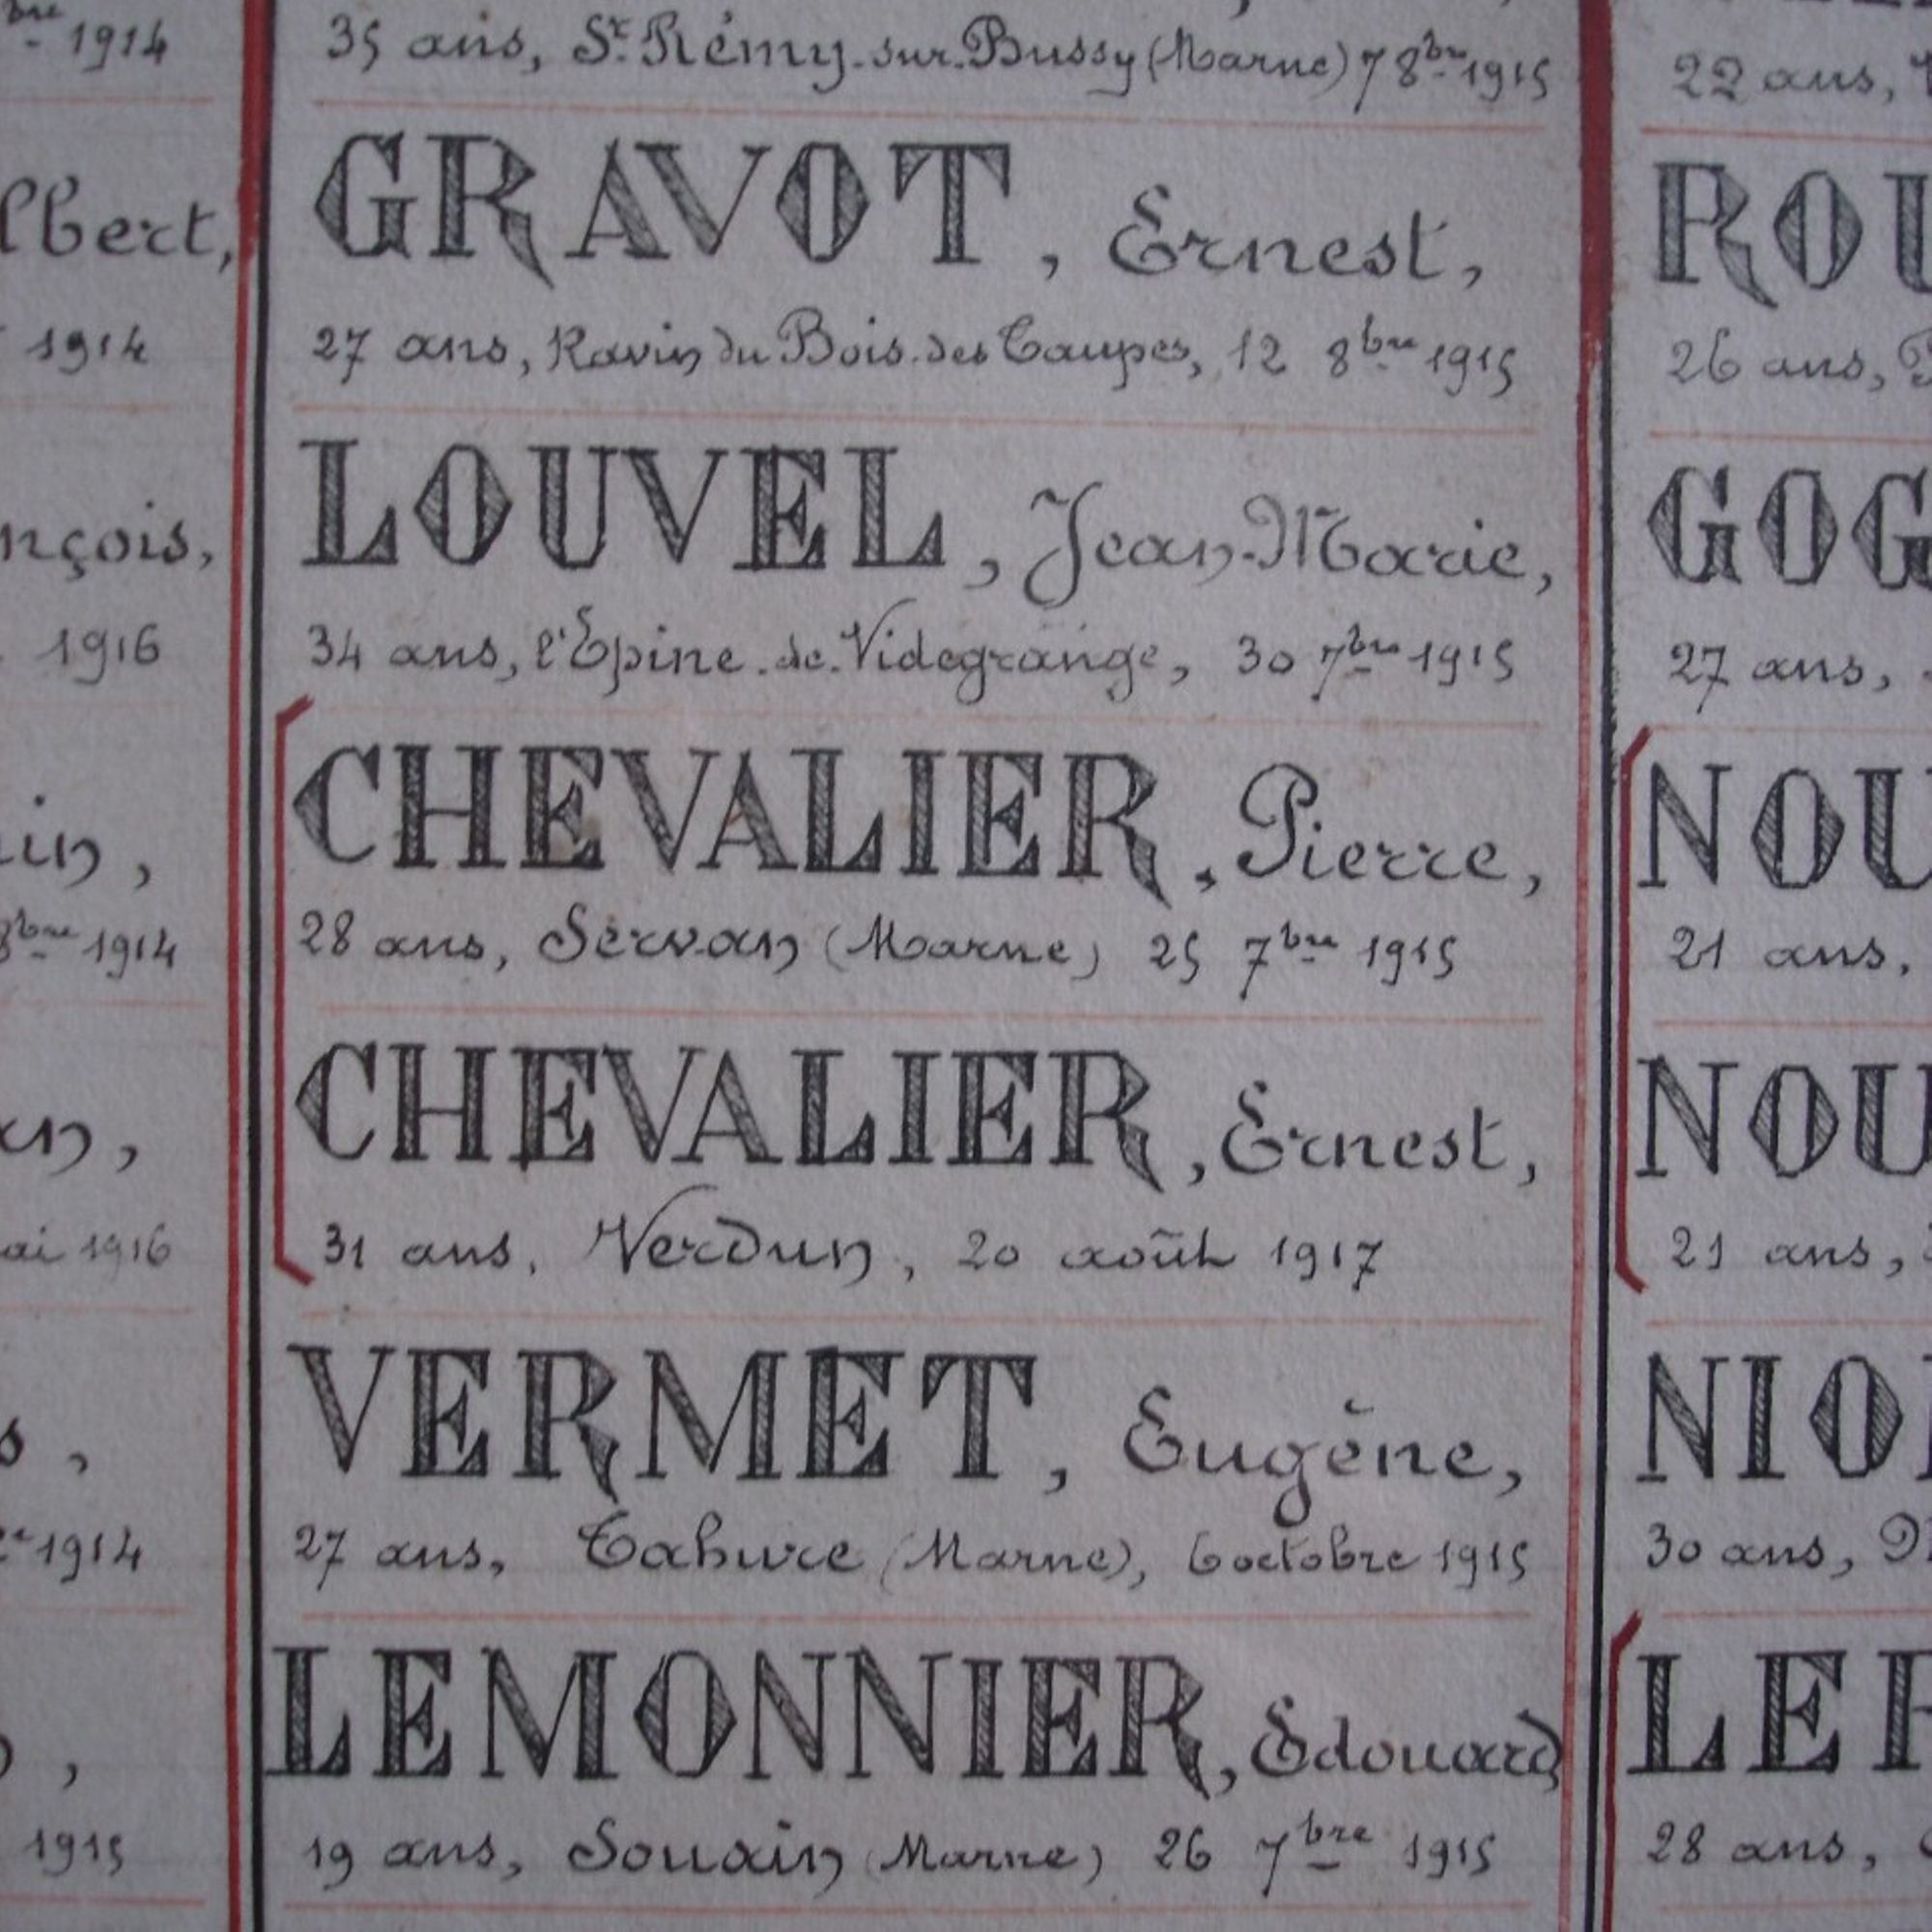 bre 1914
lbert,
1914
nçois,
1916
in,
8bre 1914
an,
ai 1916
s,
1914
,
1915
35 ans, St. Rémy-sur-Bussy (Marne) 7 8bre 1915
GRAVOT, Ernest,
27 ans, Ravin du Bois-des Taupes, 12 8bre 1915
LOUVEL, Jean-Marie,
34 ans, l'Epine-de-Videgrange, 30 7bre 1915
CHEVALIER, Pierre,
28 ans, Servan (Marne) 25 7bre 1915
CHEVALIER, Ernest,
31 ans, Verdun, 20 août 1917
VERMET, Eugène,
27 ans, Tahure (Marne), 6 octobre 1915
LEMONNIER, Edouard
19 ans, Souain (Marne) 26 7bre 1915
22 ans,
ROU
26 ans,
GOG
27 ans,
NOU
21 ans,
NOU
21 ans,
NIO
30 ans,
LE
28 ans,